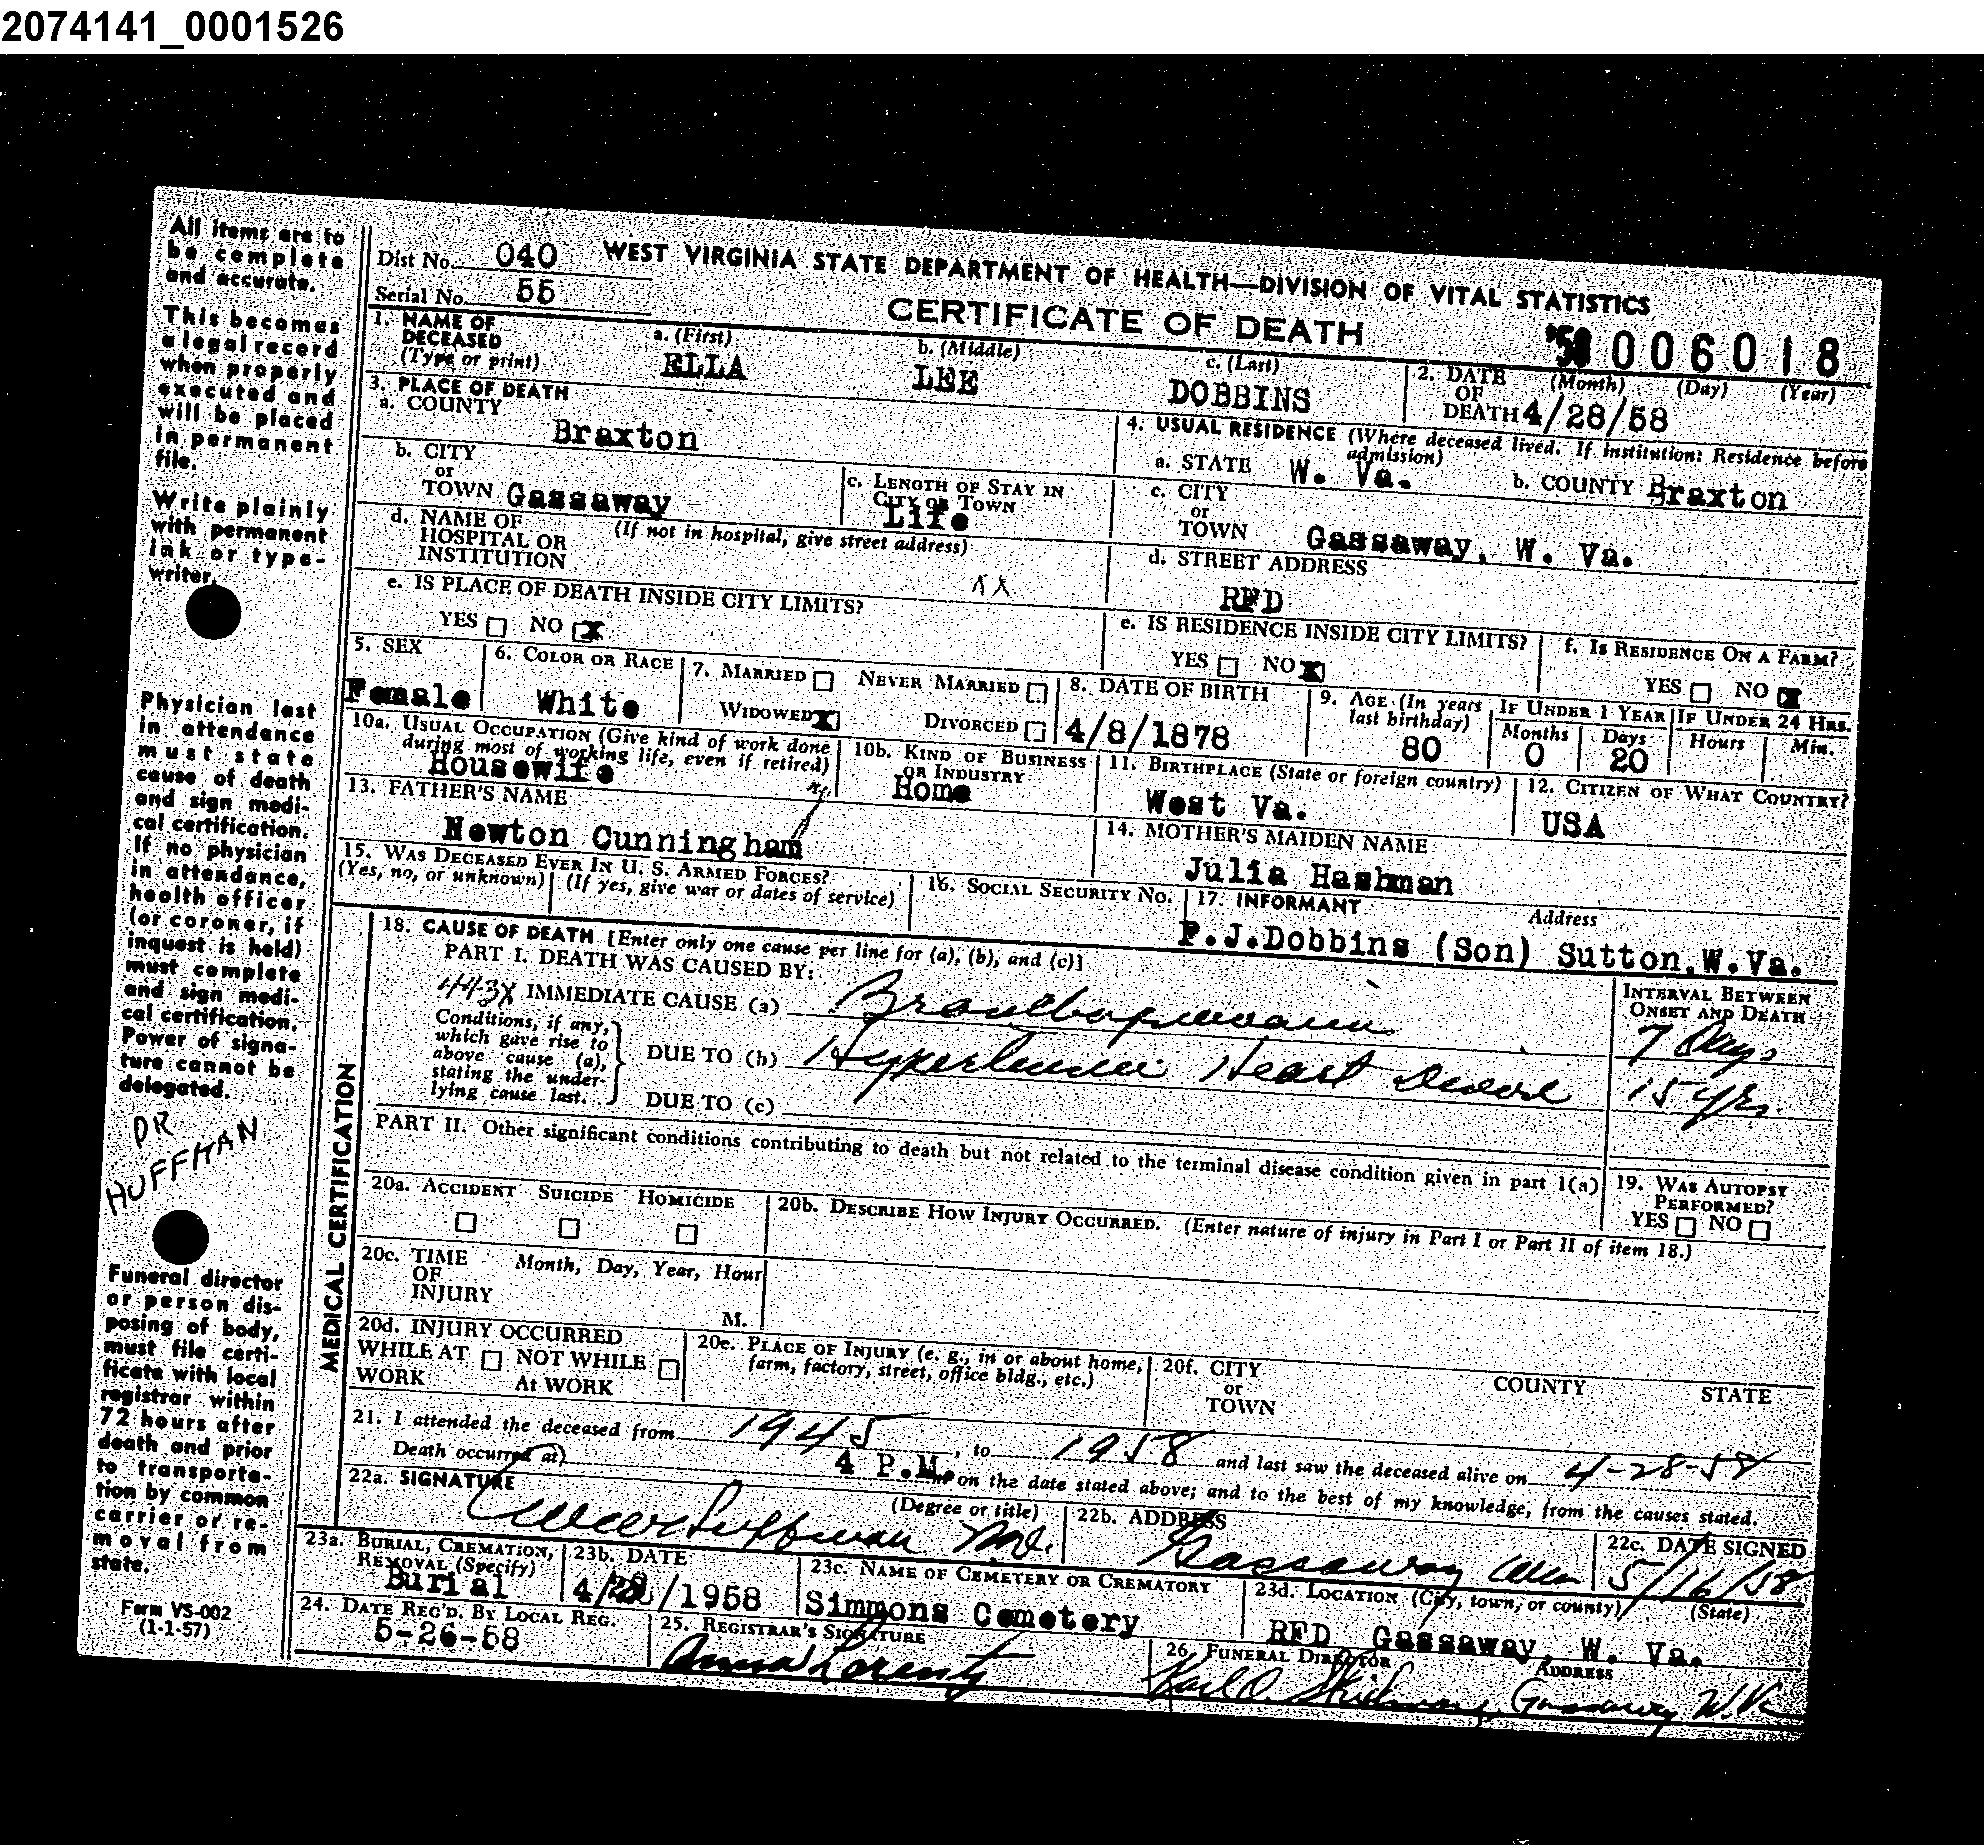 2074141_0001526
All items are to
be complete
and accurate.
This becomes
a legal record
when properly
executed and
will be placed
in permanent
file.
Write plainly
with permanent
ink or type-
writer.
Physician last
in attendance
must state
cause of death
and sign medi-
cal certification.
If no physician
in attendance,
health officer
(or coroner, if
inquest is held)
must complete
and sign medi-
cal certification.
Power of signa-
ture cannot be
delegated.
DR
HUFFMAN
Funeral director
or person dis-
posing of body,
must file certi-
ficate with local
registrar within
72 hours after
death and prior
to transporta-
tion by common
carrier or re-
moval from
state.
Form VS-002
(1-1-57)
Dist No. 040 WEST VIRGINIA STATE DEPARTMENT OF HEALTH—DIVISION OF VITAL STATISTICS
Serial No. 55 CERTIFICATE OF DEATH
006018
1. NAME OF DECEASED (Type or print) a. (First) ELLA b. (Middle) LEE c. (Last) DOBBINS
2. DATE OF DEATH (Month) (Day) (Year) 4/28/58
3. PLACE OF DEATH
a. COUNTY Braxton
4. USUAL RESIDENCE (Where deceased lived. If institution: Residence before admission)
a. STATE W. Va. b. COUNTY Braxton
b. CITY or TOWN Gassaway c. LENGTH OF STAY IN CITY OR TOWN Life
c. CITY or TOWN Gassaway, W. Va.
d. NAME OF HOSPITAL OR INSTITUTION (If not in hospital, give street address)
d. STREET ADDRESS RFD
e. IS PLACE OF DEATH INSIDE CITY LIMITS? XX
YES NO X
e. IS RESIDENCE INSIDE CITY LIMITS? YES NO X
f. IS RESIDENCE ON A FARM? YES NO X
5. SEX Female
6. COLOR OR RACE White
7. MARRIED NEVER MARRIED WIDOWED X DIVORCED
8. DATE OF BIRTH 4/8/1878
9. AGE (In years last birthday) 80
IF UNDER 1 YEAR Months 0 Days 20
IF UNDER 24 HRS. Hours Min.
10a. USUAL OCCUPATION (Give kind of work done during most of working life, even if retired) Housewife
10b. KIND OF BUSINESS OR INDUSTRY Home
11. BIRTHPLACE (State or foreign country) West Va.
12. CITIZEN OF WHAT COUNTRY? USA
13. FATHER'S NAME Newton Cunningham
14. MOTHER'S MAIDEN NAME Julia Hashman
15. WAS DECEASED EVER IN U. S. ARMED FORCES?
(Yes, no, or unknown) (If yes, give war or dates of service)
16. SOCIAL SECURITY NO.
17. INFORMANT Address
F.J.Dobbins (Son) Sutton,W.Va.
MEDICAL CERTIFICATION
18. CAUSE OF DEATH [Enter only one cause per line for (a), (b), and (c)]
PART I. DEATH WAS CAUSED BY:
INTERVAL BETWEEN ONSET AND DEATH
443X IMMEDIATE CAUSE (a) Bronchopneumonia 7 Days
Conditions, if any, which gave rise to above cause (a), stating the under-lying cause last.
DUE TO (b) Hypertensive Heart Disease 15 yrs.
DUE TO (c)
PART II. Other significant conditions contributing to death but not related to the terminal disease condition given in part I(a)
19. WAS AUTOPSY PERFORMED? YES NO
20a. ACCIDENT SUICIDE HOMICIDE
20b. DESCRIBE HOW INJURY OCCURRED. (Enter nature of injury in Part I or Part II of item 18.)
20c. TIME OF INJURY Month, Day, Year, Hour M.
20d. INJURY OCCURRED
WHILE AT WORK NOT WHILE At WORK
20e. PLACE OF INJURY (e. g., in or about home, farm, factory, street, office bldg., etc.)
20f. CITY or TOWN COUNTY STATE
21. I attended the deceased from 1945, to 1958 and last saw the deceased alive on 4-28-58
Death occurred at) 4 P.M. on the date stated above; and to the best of my knowledge, from the causes stated.
22a. SIGNATURE (Degree or title) Huffman M.D.
22b. ADDRESS Gassaway
22c. DATE SIGNED 5/16/58
23a. BURIAL, CREMATION, REMOVAL (Specify) Burial
23b. DATE /1958
23c. NAME OF CEMETERY OR CREMATORY Simmons Cemetery
23d. LOCATION (City, town, or county) (State)
RFD Gassaway, W. Va.
24. DATE REC'D. BY LOCAL REG. 5-26-58
25. REGISTRAR'S SIGNATURE Anna Lorentz
26. FUNERAL DIRECTOR ADDRESS
Karl O. Gassaway W.Va